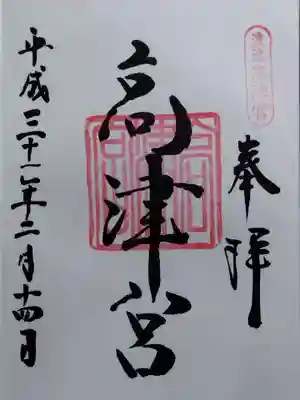 奉拝
高津宮
平成三十一年二月十四日